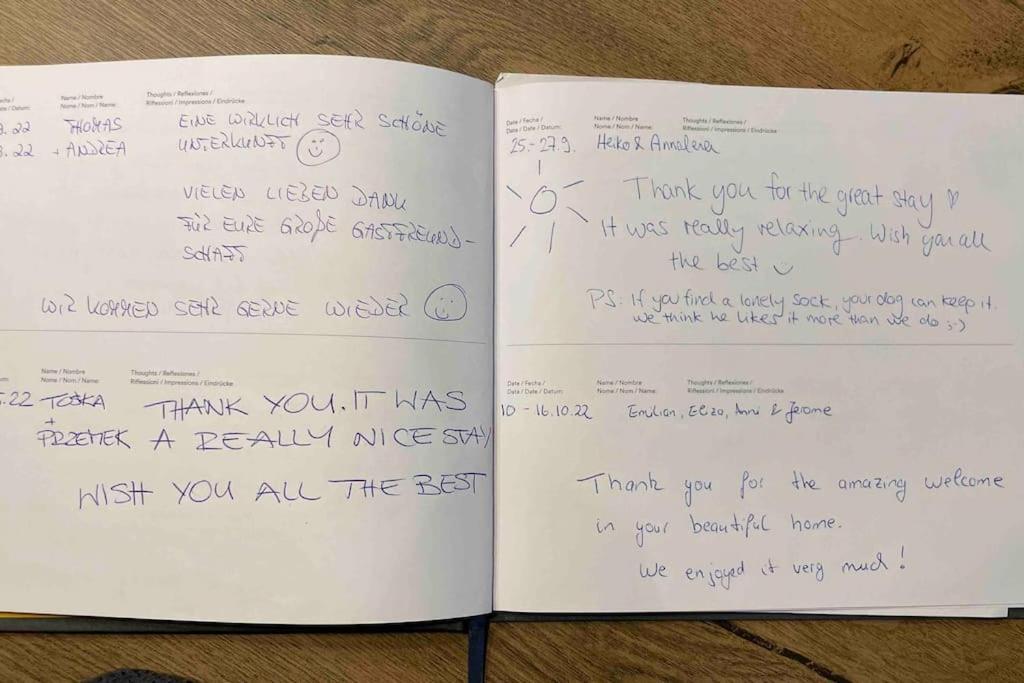 Fecha / Name / Nombre Thoughts / Reflexiones /
Date / Datum: Nome / Nom / Name: Riflessioni / Impressions / Eindrücke
.22 THOMAS EINE WIRKLICH SEHR SCHÖNE
.22 + ANDREA UNTERKUNFT
VIELEN LIEBEN DANK
FÜR EURE GROßE GASTFREUND-
SCHAFT
WIR KOMMEN SEHR GERNE WIEDER
Name / Nombre Thoughts / Reflexiones /
Nome / Nom / Name: Riflessioni / Impressions / Eindrücke
.22 TOŚKA THANK YOU. IT WAS
+
PRZEMEK A REALLY NICE STAY
WISH YOU ALL THE BEST
Date / Fecha / Name / Nombre Thoughts / Reflexiones /
Data / Date / Datum: Nome / Nom / Name: Riflessioni / Impressions / Eindrücke
25.-27.9. Heiko & Annalena
Thank you for the great stay ♡
It was really relaxing. Wish you all
the best
PS: If you find a lonely sock, your dog can keep it.
We think he likes it more than we do ;-)
Date / Fecha / Name / Nombre Thoughts / Reflexiones /
Data / Date / Datum: Nome / Nom / Name: Riflessioni / Impressions / Eindrücke
10 - 16.10.22 Emilian, Eliza, Anni & Jerome
Thank you for the amazing welcome
in your beautiful home.
We enjoyed it very much!